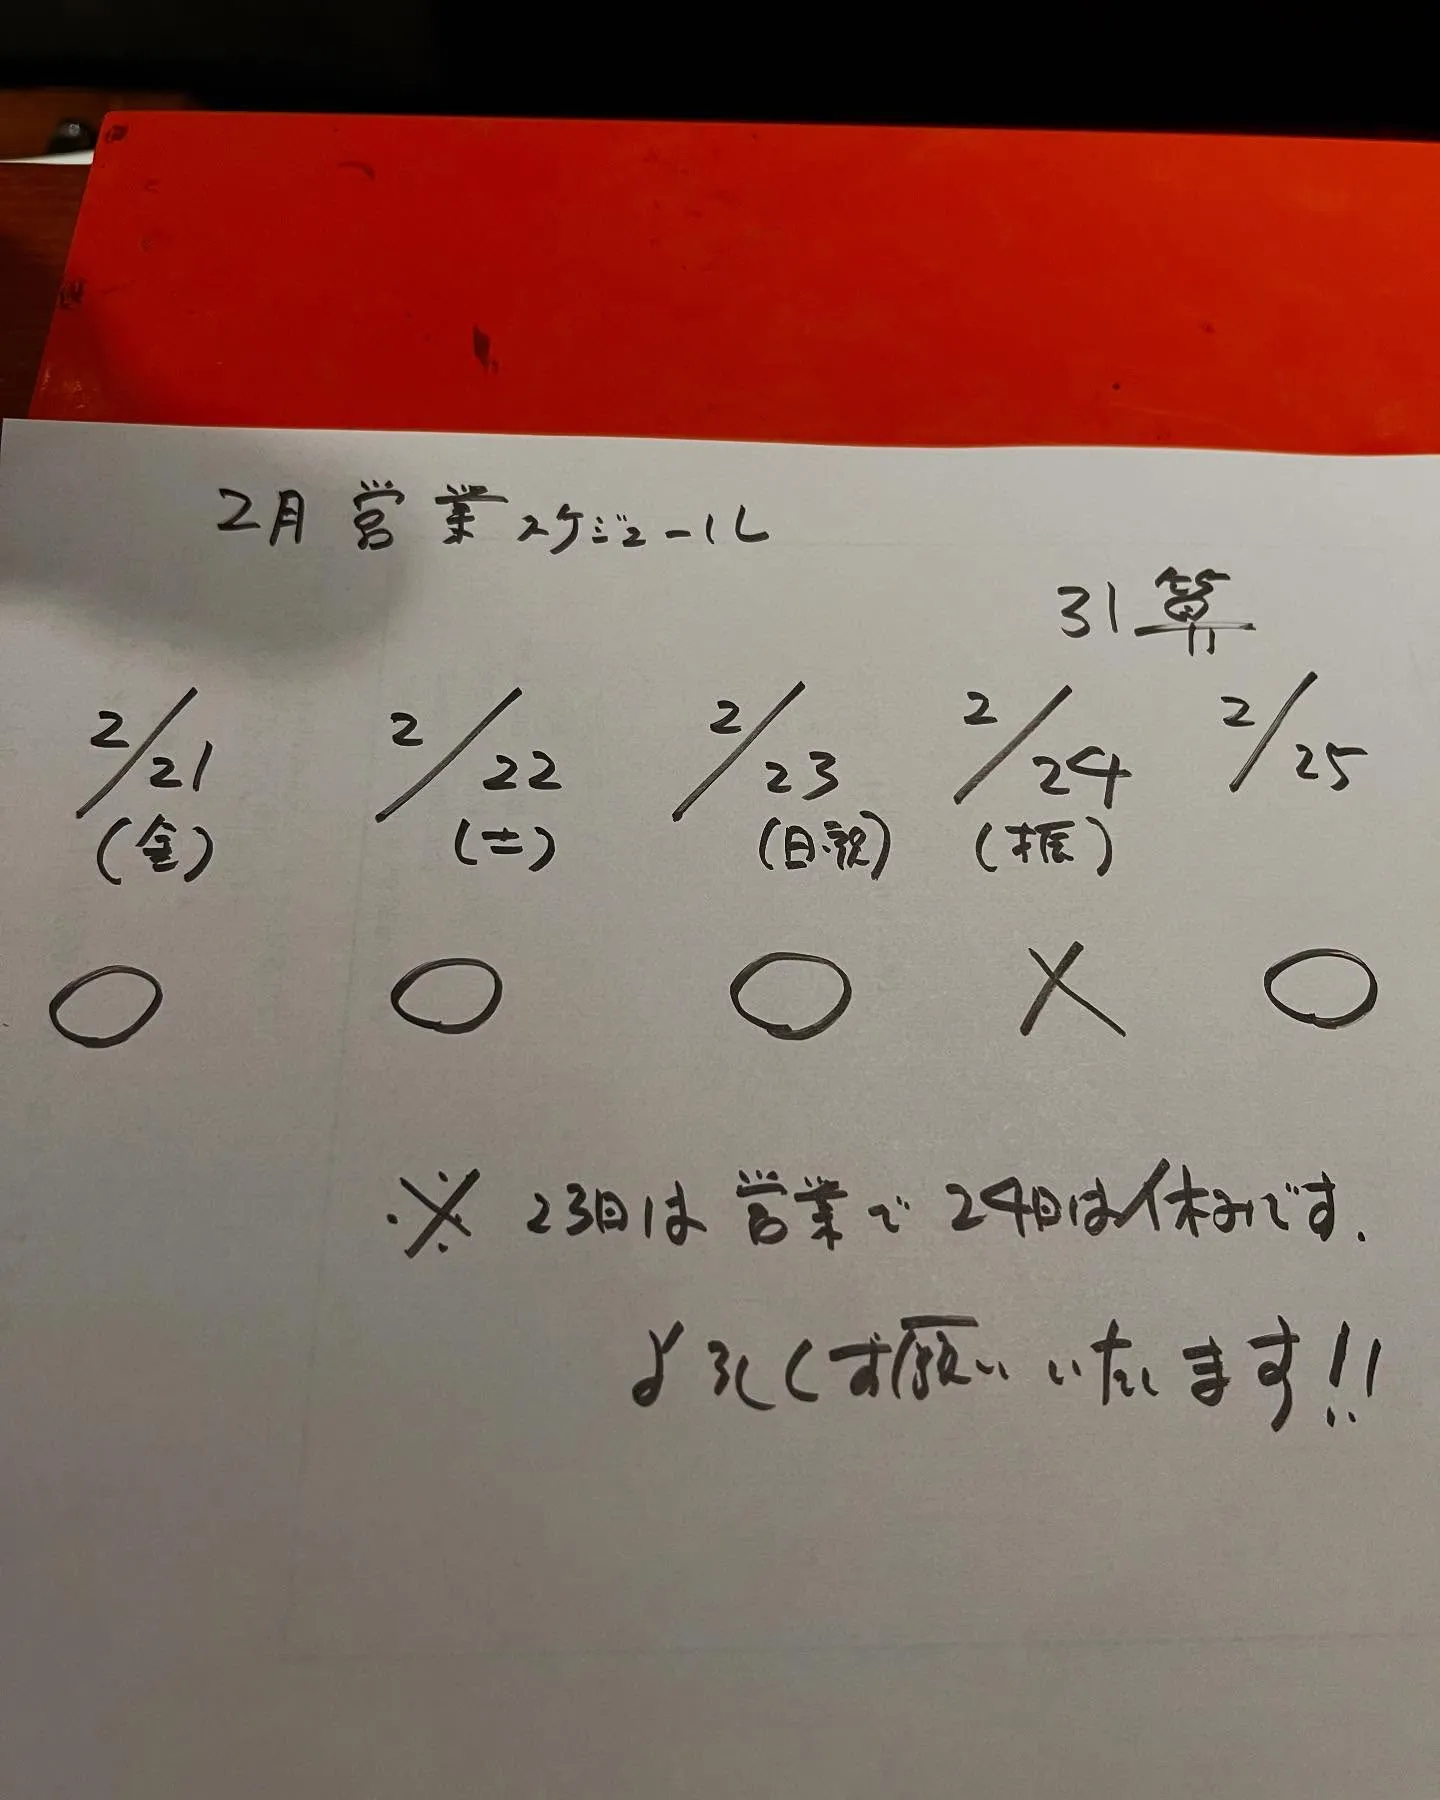 2月営業スケジュール
31算
2/21 2/22 2/23 2/24 2/25
(金) (土) (日・祝) (振)
○ ○ ○ × ○
※ 23日は営業で24日は休みです.
よろしくお願いいたします!!